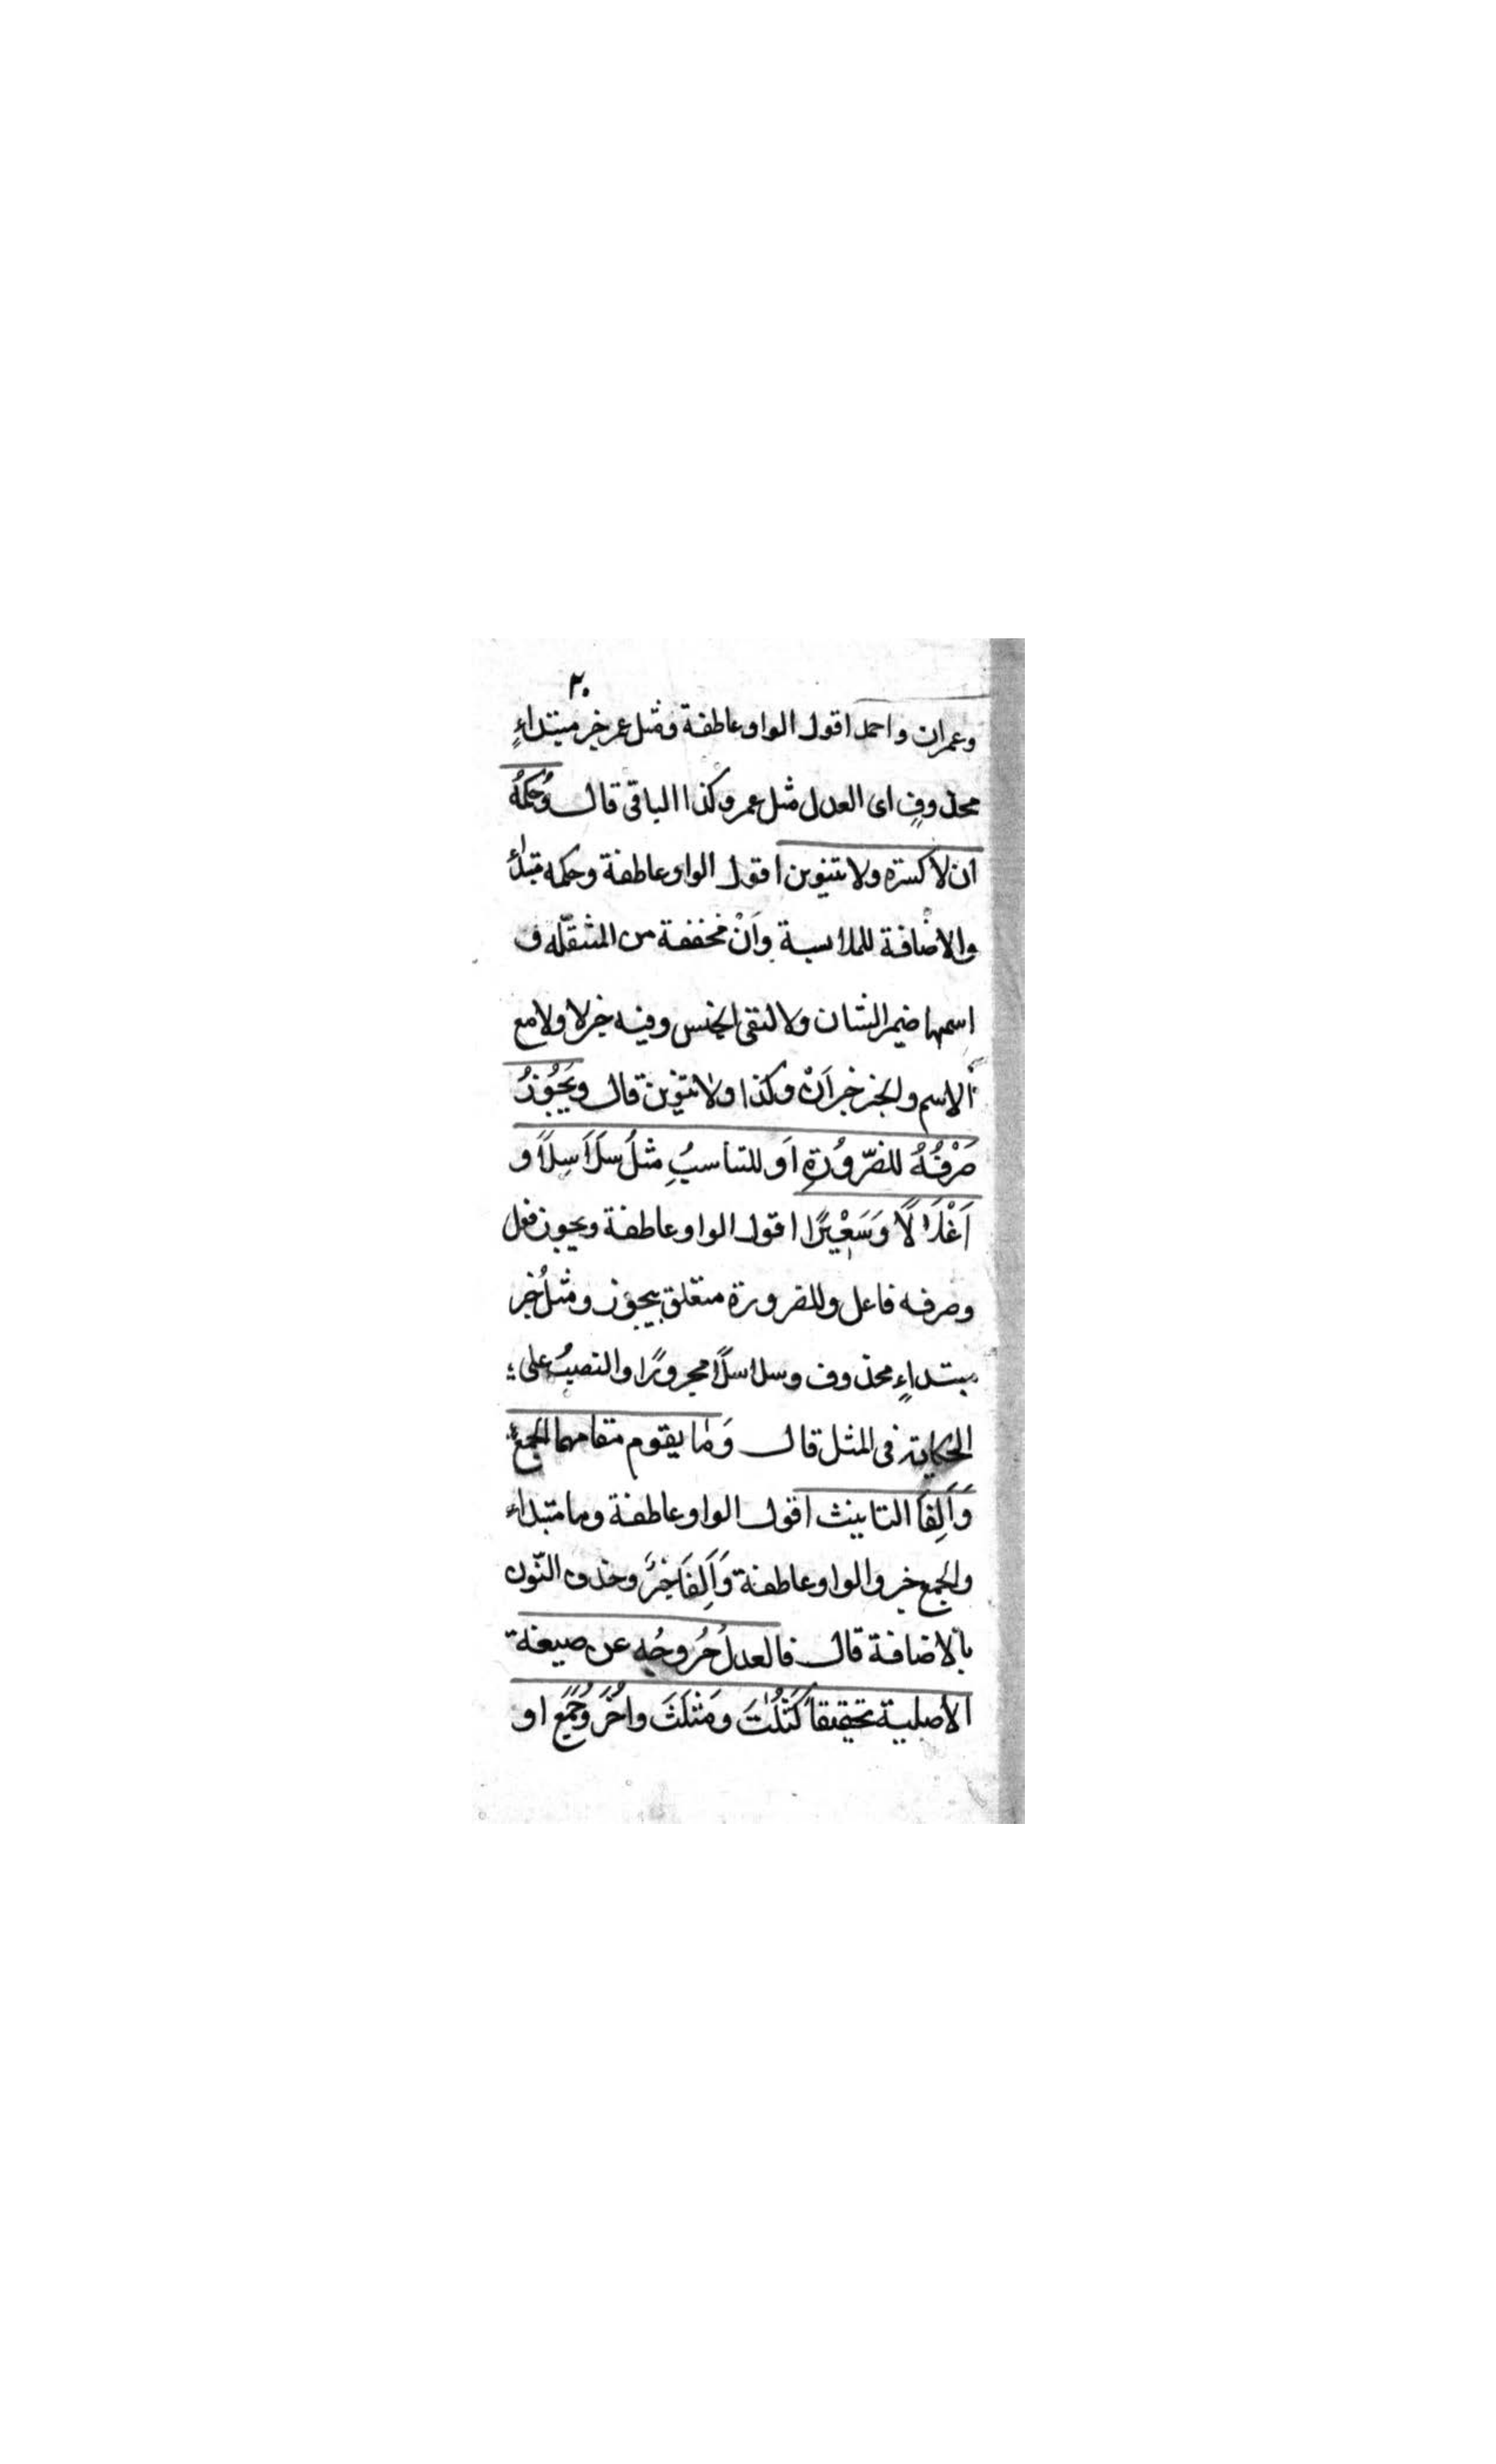 ٢٠
وعمران واحمد اقول الواو عاطفة ومثل عمر خبر مبتداءٍ
محذوفٍ اى العدل مثل عمر وكذا الباقى قال وُحكمُهُ
ان لا كسره ولا تنوين اقول الواو عاطفة وحكمه مبتداء
والاضافة للملابسة وَاَنْ مخففة من المثقّله و
اسمها ضيمر الشان ولا لنقى الجنس وفيه خبر لا ولا مع
الاسم والخبر خبر اَنْ وكذا ولا تنوين قال ويَجُوُزُ
صَرْفُهُ للضّروُرَةِ اَو للتناسبُِ مثلُ سَلَاَسِلًا و
اَغْلَاٰلًا وَسَعْيِرًا اقول الواو عاطفة ويجوز فعل
وصرفه فاعل وللضرورة متعلق بيجوز ومثلُ خبر
مبتداءٍ محذوف وسلاسلًا مجرورًا والنصبُ على
الحكاية فى المثل قال وَمٰا يقوم مقامهما الجمعُ
وَاَلِفَا التانيث اقول الواو عاطفة وما مبتداء
والجمع خبر والواو عاطفة وَاَلِفَا خبرٌ وحذف النّون
بالاضافة قال فالعدلُ خُرُوجُه عن صيغة
الاصلية تحقيقاً كَثُلٰثَ وَمَثْلَثَ واُخَرَ وَجُمَعَ او